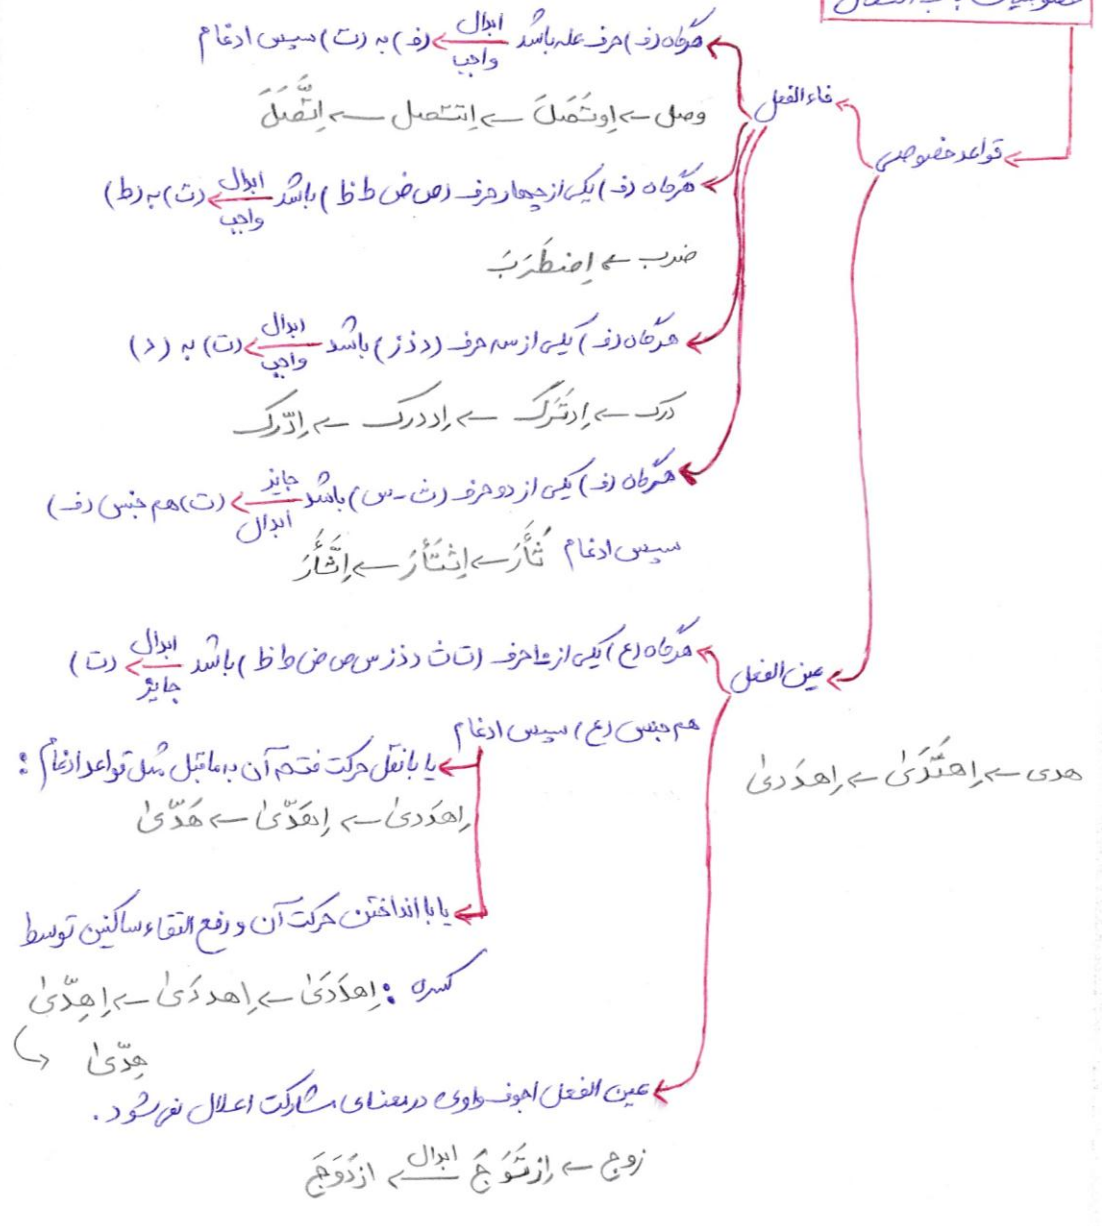 قواعد خصوصی
فاء الفعل
هرگاه (ف) حرف عله باشد ابدال واجب (ف) به (ت) سپس ادغام
وصل ← اِوتَصَلَ ← اِتتصل ← اِتَّصَلَ
هرگاه (ف) یکی از چهار حرف (ص ض ط ظ) باشد ابدال واجب (ت) به (ط)
ضرب ← اِضطَرَبَ
هرگاه (ف) یکی از سه حرف (د ذ ز) باشد ابدال واجب (ت) به (د)
درک ← اِدتَرَکَ ← اِددرک ← اِدّرک
هرگاه (ف) یکی از دو حرف (ث - س) باشد جایز ابدال (ت) هم جنس (ف)
سپس ادغام ثَأَرَ ← اِثتَأَرَ ← اِثَّأَرَ
عین الفعل
هرگاه (ع) یکی از ۱۰ حرف (ت ث د ذ ز س ص ض ط ظ) باشد ابدال جایز (ت)
هم جنس (ع) سپس ادغام
هدی ← اِهتَدَیٰ ← اِهدَدیٰ
یا با نقل حرکت فتحه آن به ماقبل مثل قواعد ادغام :
اِهدَدیٰ ← اِهَدّیٰ ← هَدّیٰ
یا با انداختن حرکت آن و رفع التقاء ساکنین توسط
کسره : اِهدَدَیٰ ← اِهددَیٰ ← اِهِدّیٰ
هِدّیٰ
عین الفعل اجوف واوی در معنای مشارکت اعلال نمی شود .
زوج ← اِزتَوَجَ ابدال ازدَوَجَ